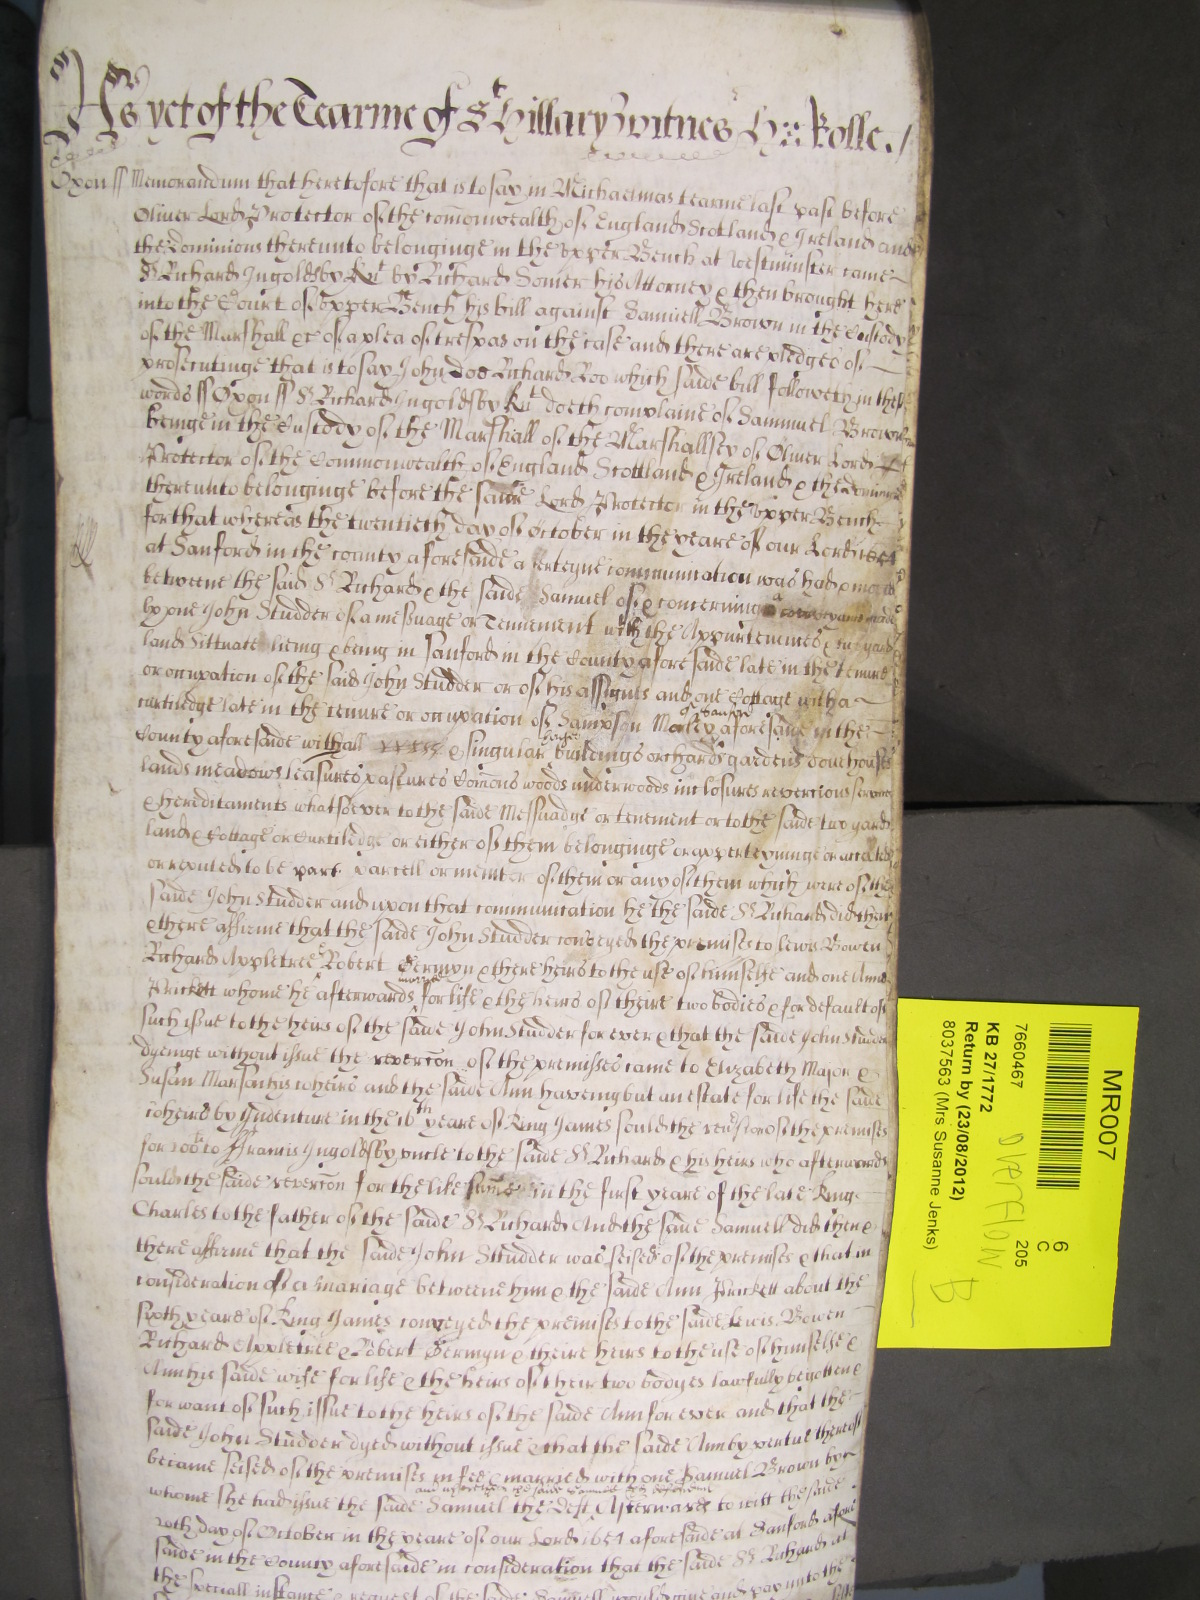 As yet of the Tearme of St Hillary Witnes Hen: Rolle.
Oxon ss Memorandum that heretofore that is to say in Michaelmas tearme last past before
Oliver Lord Protector of the comonwealth of England Scotland & Ireland and
the dominions thereunto belonginge in the Upper Bench at Westminster came
Sr Richard Ingoldsby Knt by Richard Somer his Attorney & then brought here
into the Court of Upper Bench his bill against Samuell Brown in the Custody
of the Marshall &c of a plea of trespas on the case and there are pledges of
prosecutinge that is to say John Doe Richard Roo which saide bill followeth in these
words ss Oxon ss Sr Richard Ingoldsby Knt doeth complaine of Sammuel Brown
beinge in the Custody of the Marshall of the Marshallsey of Oliver Lord
Protector of the Commonwealth of England Scottland & Ireland & the dominions
thereunto belonginge before the same Lord Protector in the Upper Bench
for that whereas the twentieth day of October in the yeare of our Lord
at Sanford in the county aforesaide a certeyne communication was had & moved
betweene the said Sr Richard & the saide Samuel of & concerning a conveyance made
by one John Studder of a messuage or Tennement with the Appurtennces & two yard
land Sittuate lieing & being in Sanford in the County aforesaide late in the tenure
or occupation of the said John Studder or of his assignes and one Cottage with a
curtiledge late in the tenure or occupation of Sampson of Sanford aforesaide in the
County aforesaide withall & singular houses buildings orchards gardens dovehouses
lands meadows leasures pastures Comons woods underwoods inclosures revercions services
& hereditaments whatsoever to the saide Messuadge or tenement or to the saide two yard
land & Cottage or Curtiledge or either of them belonginge or apperteyninge or accepted
or reputed to be part parcell or member of them or any of them which were of the
saide John Studder and upon that communication he the saide Sr Richard did then
& there affirme that the saide John Studder conveyed the premises to Lewis Bowen
Richard Appletree & Robert Jermyn & there heirs to the use of himselfe and one Ann
Prickett whome he afterwards married for life & the heirs of theire two bodies & for default of
such issue to the heirs of the saide John Studder for ever & that the saide John Studder
dyeinge without issue the revercon of the premisses came to Elizabeth Major &
Susan Marsan his coheirs and the saide Ann haveing but an estate for life the saide
coheirs by Indenture in the 16th yeare of King James sould the revercion of the premises
for 100li to Francis Ingoldsby uncle to the saide Sr Richard & his heirs who afterwards
sould the saide revercon for the like sume in the first yeare of the late King
Charles to the father of the saide Sr Richard And the same Samuell did then &
there affirme that the saide John Studder was seised of the premises & that in
consideration of a mariage betweene him & the saide Ann Prickett about the
sixth yeare of King James conveyed the premises to the saide Lewis Bowen
Richard Appletree & Robert Jermyn & theire heirs to the use of himselfe &
Ann his saide wife for life & the heirs of their two bodyes lawfully begotten &
for want of such issue to the heirs of the saide Ann for ever and that the
saide John Studder dyed without issue & that the saide Ann by vertue thereof
became seised of the premises in fee & married with one Samuel Brown by
whome she had issue the saide Samuel the deft Afterwards to witt the saide
20th day of October in the yeare of our Lord 1654 aforesaide at Sanford afore
saide in the County aforesaide in consideration that the saide Sr Richard at
the speciall instance & request of the saide Samuell would give and pay unto the
MR007
6
C
205
7660467
KB 27/1772
OVERFLOW
Return by (23/08/2012)
8037563 (Mrs Susanne Jenks)
B